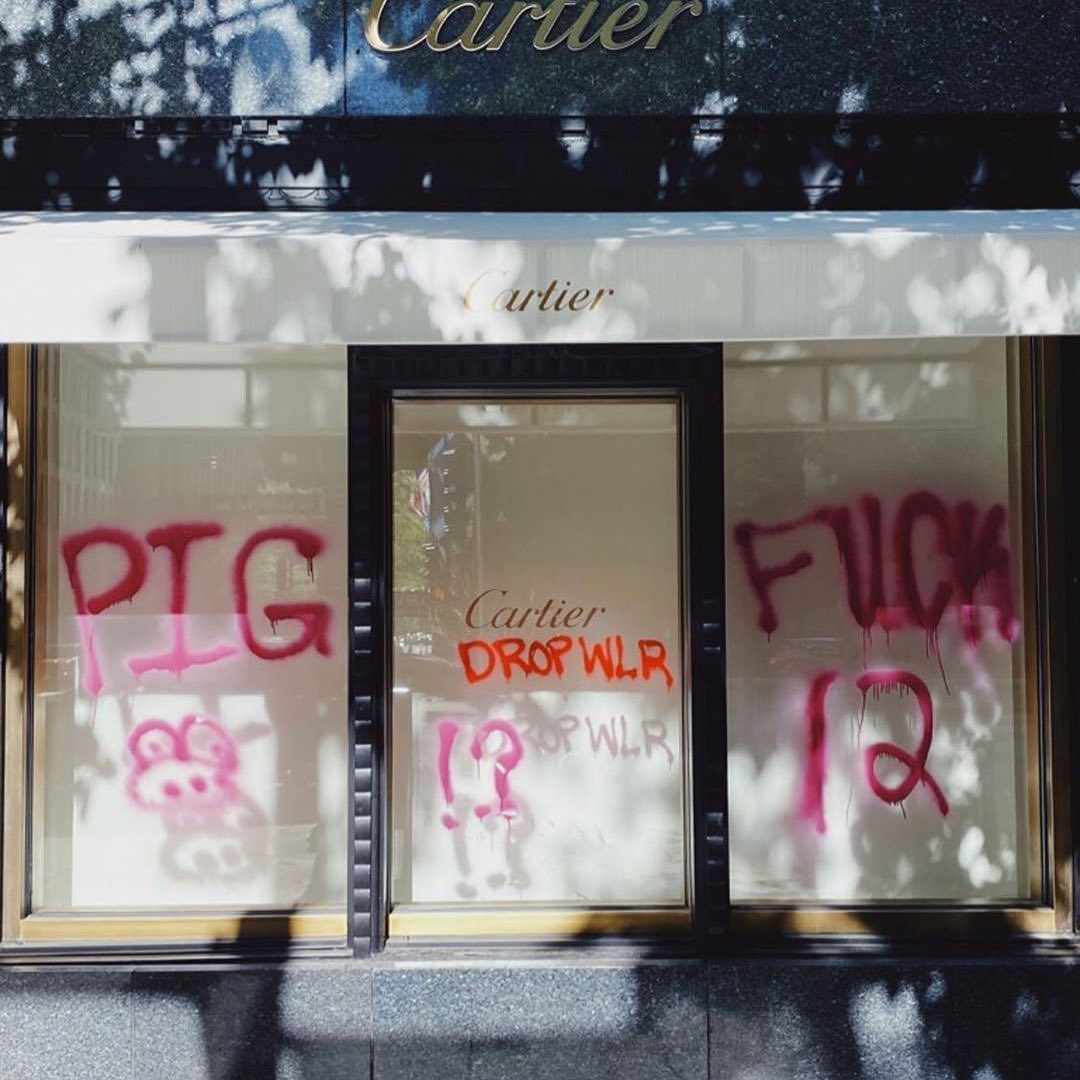 Cartier
Cartier
PIG
Cartier
DROP WLR
!?
DROP WLR
FUCK
12